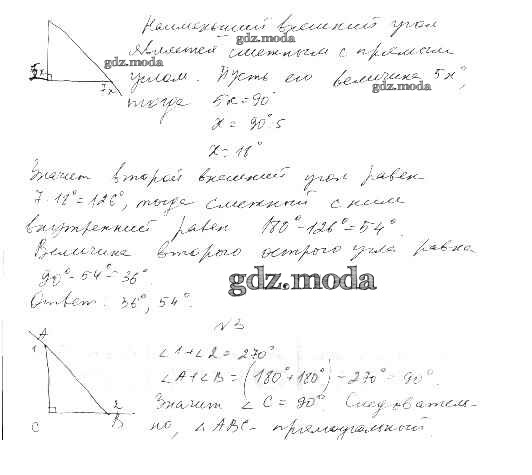 Наименьший внешний угол
gdz.moda
является смежным с прямым
gdz.moda
5x 7x
углом. Пусть его величина 5x°,
gdz.moda
тогда 5x = 90°
x = 90° : 5
x = 18°
Значит второй внешний угол равен
7 · 18° = 126°, тогда смежный с ним
внутренний равен 180° - 126° = 54°.
Величина второго острого угла равна
90° - 54° = 36°.
gdz.moda
Ответ: 36°, 54°.
N 3
A
1
∠1 + ∠2 = 270°
∠A + ∠B = (180° + 180°) - 270° = 90°.
Значит ∠C = 90°. Следователь-
2
C B
но, ∠ABC - прямоугольный.